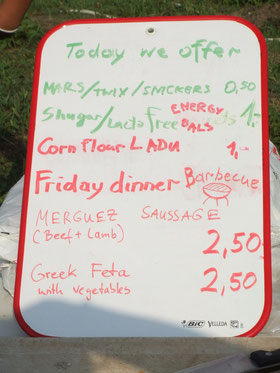 Today we offer
MARS/TWIX/SNICKERS 0,50
Shugar/Lactofree ENERGY BALS 1,-
Corn flour LADU 1,-
Friday dinner Barbecue
MERGUEZ SAUSSAGE
(Beef + Lamb) 2,50
Greek Feta 2,50
with vegetables
BIC VELLEDA